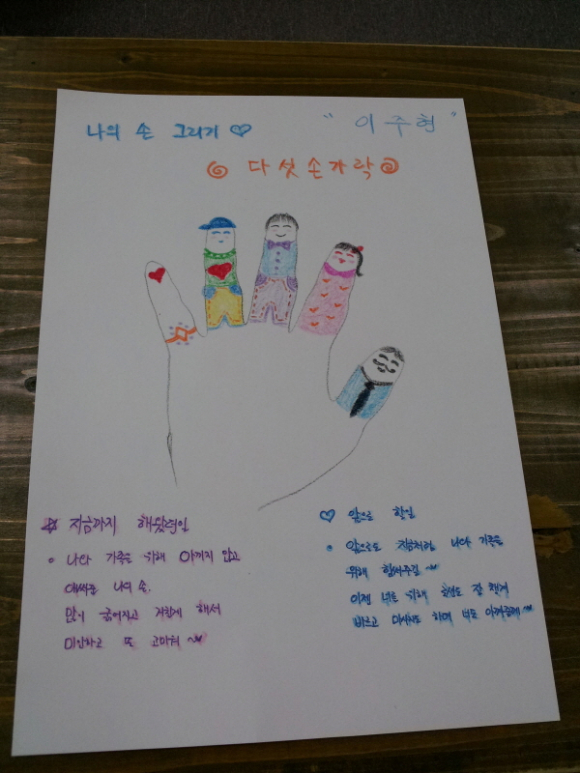 나의 손 그리기 ♡
" 이주현 "
다섯손가락
지금까지 해왔던일
나와 가족을 위해 아끼지 않고
애써준 나의 손.
많이 굵어지고 거칠게 해서
미안하고 또 고마워 ~
♡ 앞으로 할일
앞으로도 지금처럼 나와 가족을
위해 힘써주길 ~
이젠 너를 위해 크림도 잘 챙겨
바르고 마사지도 하며 너도 아껴줄께 ~